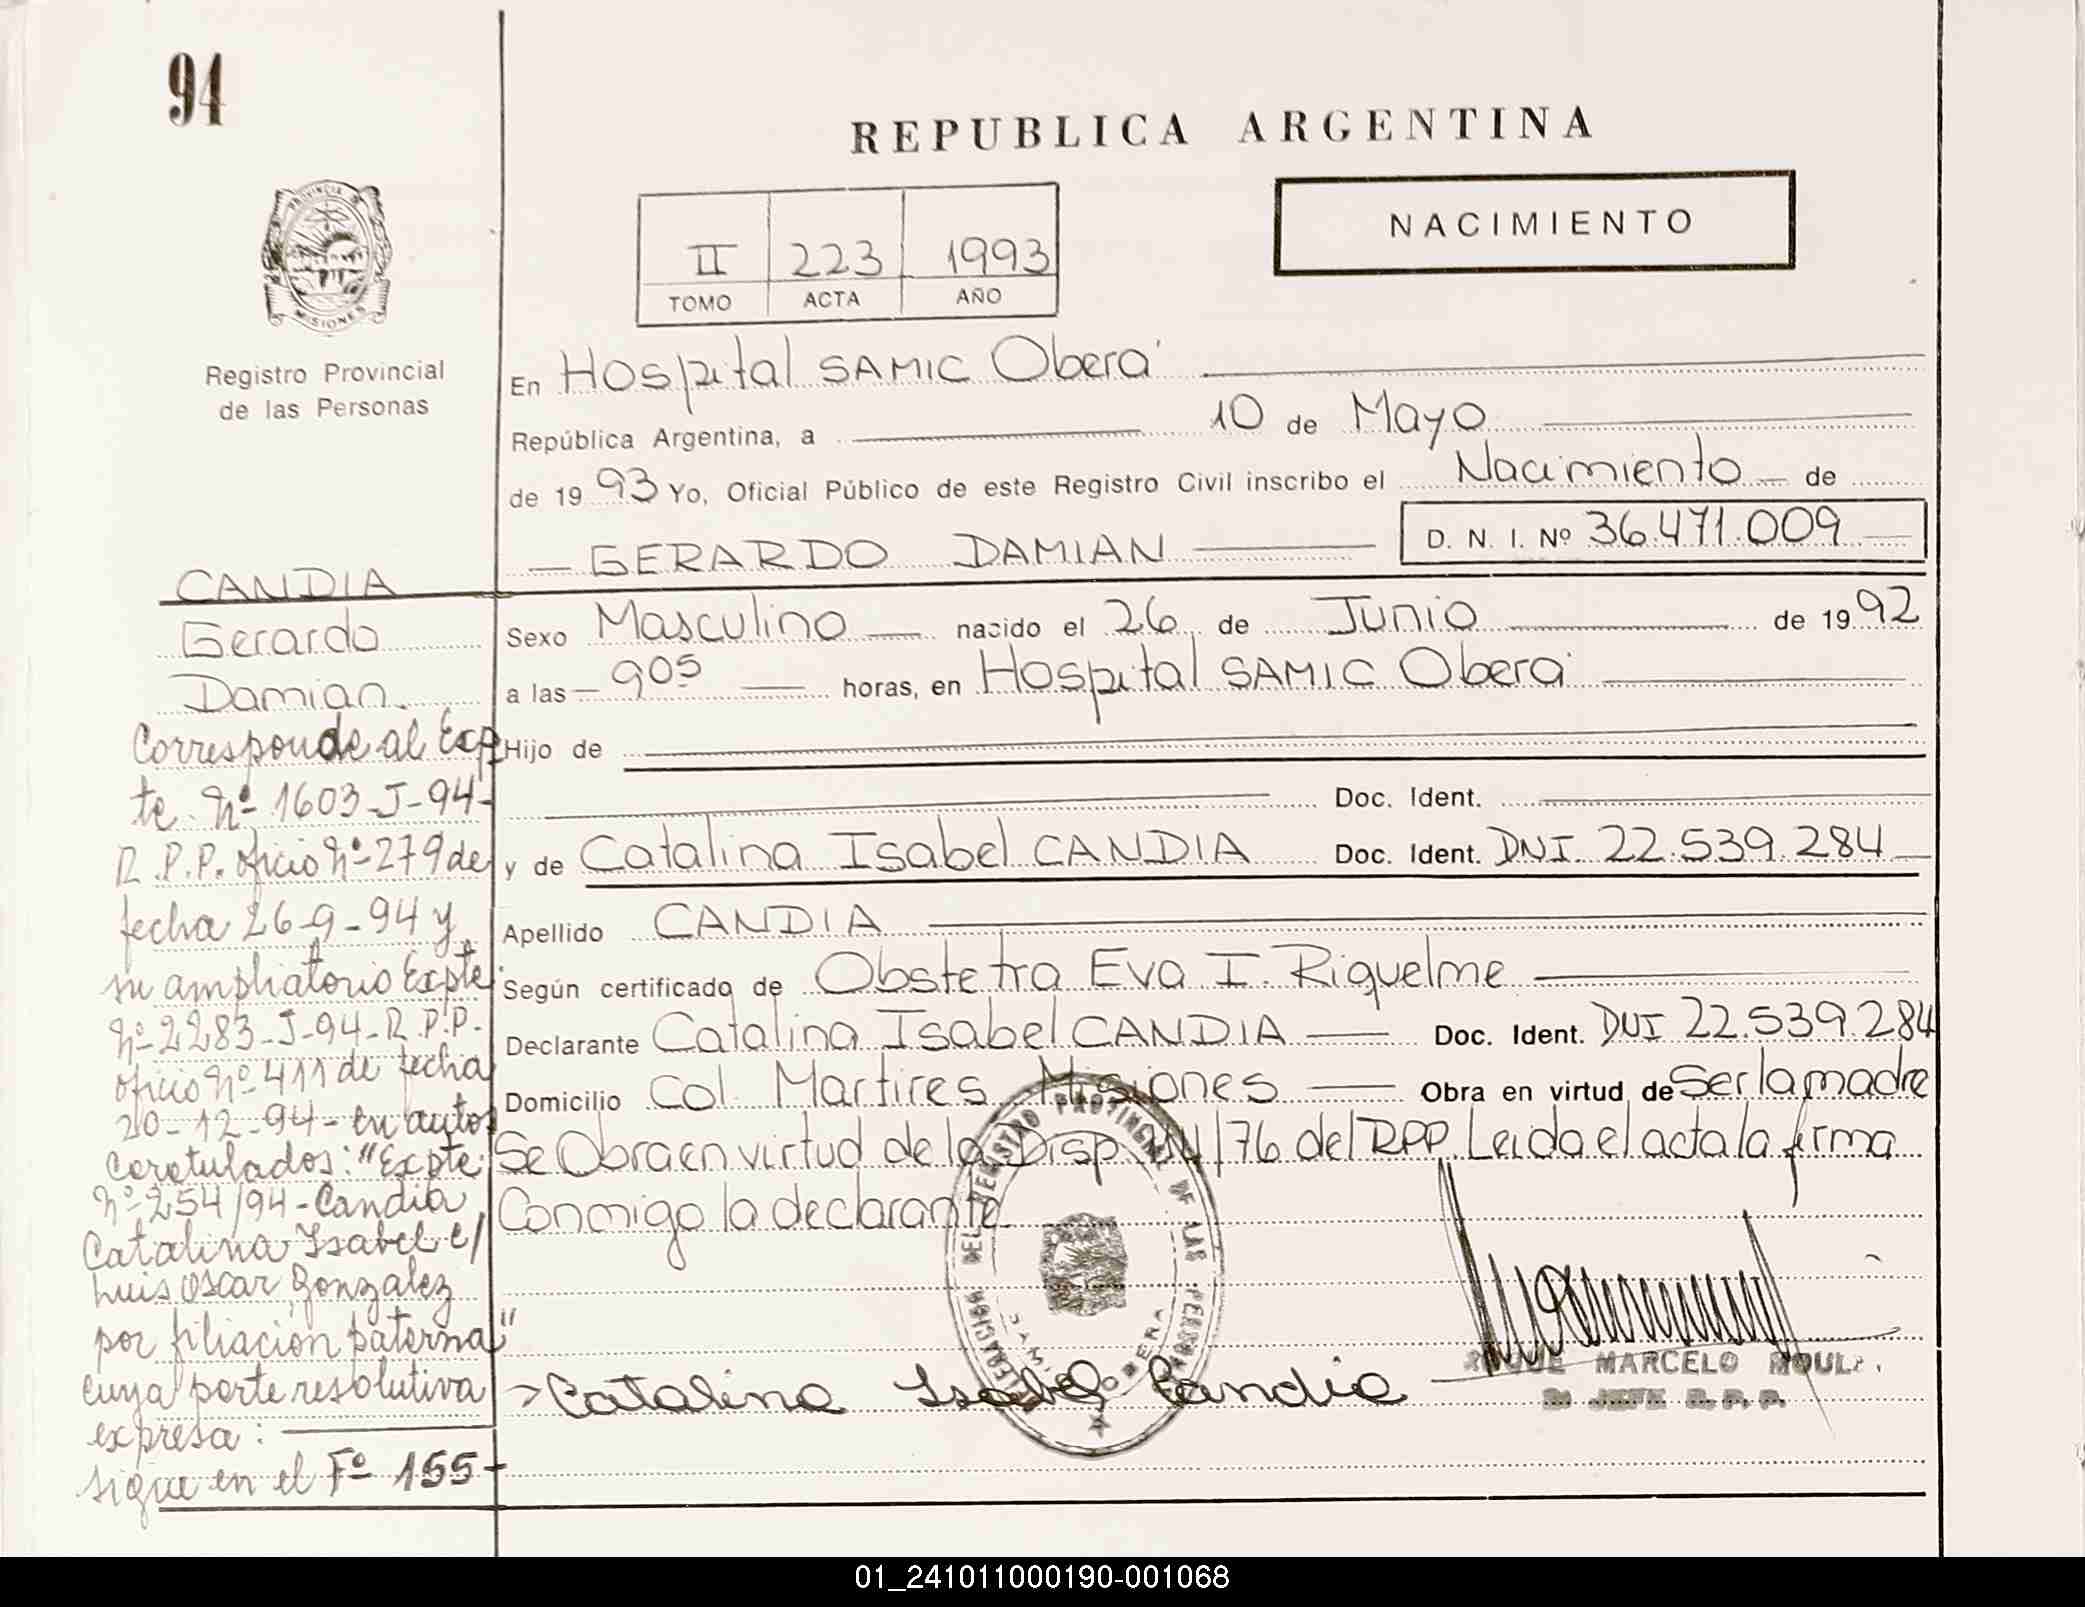 94
REPUBLICA ARGENTINA
NACIMIENTO
II 223 1993
TOMO ACTA AÑO
PROVINCIA DE
MISIONES
Registro Provincial
de las Personas
En Hospital SAMIC Oberá
República Argentina, a 10 de Mayo
de 1993 Yo, Oficial Público de este Registro Civil inscribo el Nacimiento de
GERARDO DAMIAN D. N. I. Nº 36.471.009
Sexo Masculino nacido el 26 de Junio de 1992
a las 905 horas, en Hospital SAMIC Oberá
Hijo de
Doc. Ident.
y de Catalina Isabel CANDIA Doc. Ident. DNI. 22.539.284
Apellido CANDIA
Según certificado de Obstetra Eva I. Riquelme
Declarante Catalina Isabel CANDIA Doc. Ident. DNI 22.539.284
Domicilio Col. Martires Misiones Obra en virtud de Ser la madre
Se Obra en virtud de la Disp. /76 del RPP. Leida el acta la firma
Conmigo la declarante
Catalina Isabel Candia
MARCELO
JEFE R. P. P.
DEL REGISTRO PROVINCIAL DE LAS PERSONAS
CANDIA
Gerardo
Damian
Corresponde al Exp
te. Nº 1603-J-94-
R.P.P. oficio Nº 279 de
fecha 26-9-94 y
su ampliatorio Expte
Nº 2283-J-94-R.P.P.
oficio Nº 411 de fecha
20-12-94- en autos
caratulados: "Expte.
Nº 254/94-Candia
Catalina Isabel c/
Luis Oscar Gonzalez
por filiación paterna"
cuya parte resolutiva
expresa:
sigue en el Fº 155-
01_241011000190-001068